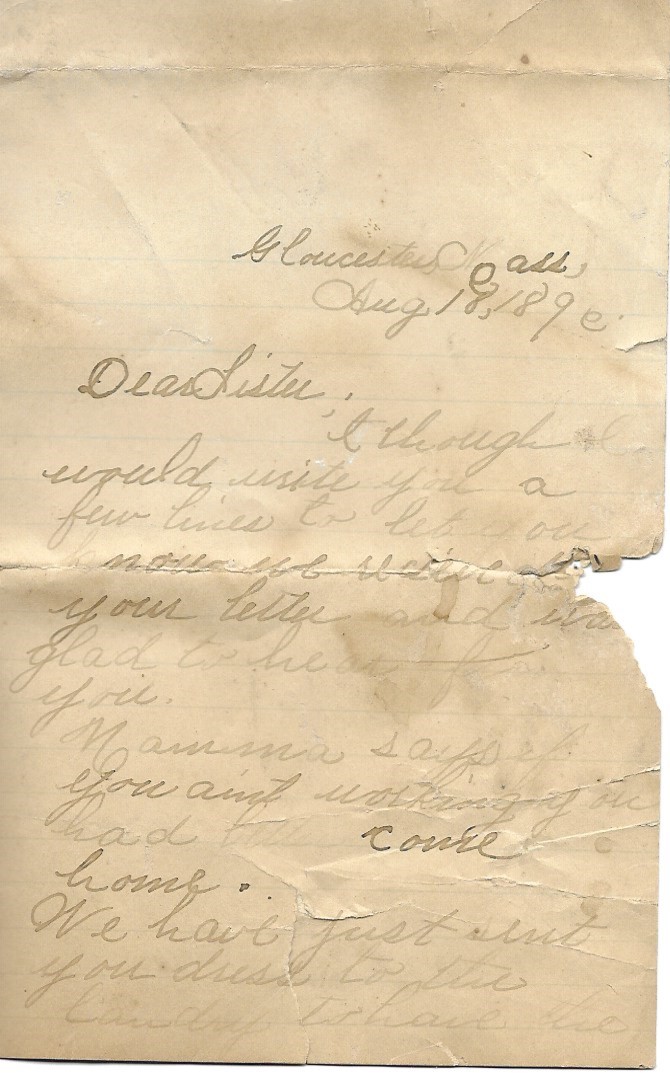 Gloucester Mass,
Aug 18, 189
Dear Sister,
I though I
would write you a
few lines to let you
know we
your letter and was
glad to hear
you.
Mamma says if
you aint working you
had come
home.
We have just sent
you dress to the
landry to have the